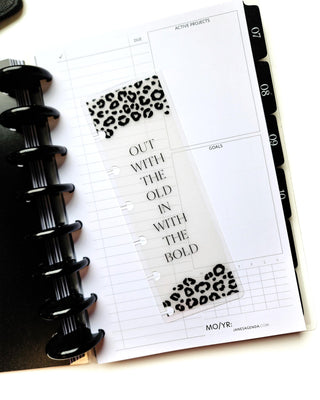 DUE
ACTIVE PROJECTS
07
08
09
10
OUT
WITH
THE
OLD
IN
WITH
THE
BOLD
GOALS
MO/YR:
JANESAGENDA.COM